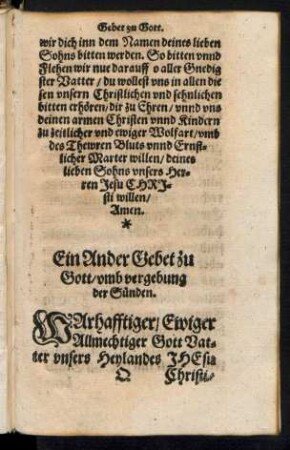 Gebet zu Gott.
wir dich inn dem Namen deines lieben
Sohns bitten werden. So bitten vnnd
Flehen wir nue darauff o aller Gnedig
ster Vatter / du wollest vns in allen die
sen vnsern Christlichen vnd sehnlichen
bitten erhören / dir zu Ehren / vnnd vns
deinen armen Christen vnnd Kindern
zu zeitlicher vnd ewiger Wolfart / vmb
des Thewren Bluts vnnd Ernst-
licher Marter willen / deines
lieben Sohns vnsers Her-
ren Jesu CHRJ-
sti willen /
Amen.
*
Ein Ander Gebet zu
Gott / vmb vergebung
der Sünden.
WArhafftiger / Ewiger
Allmechtiger Gott Vat-
ter vnsers Heylandes JHEsu
Q Christi-